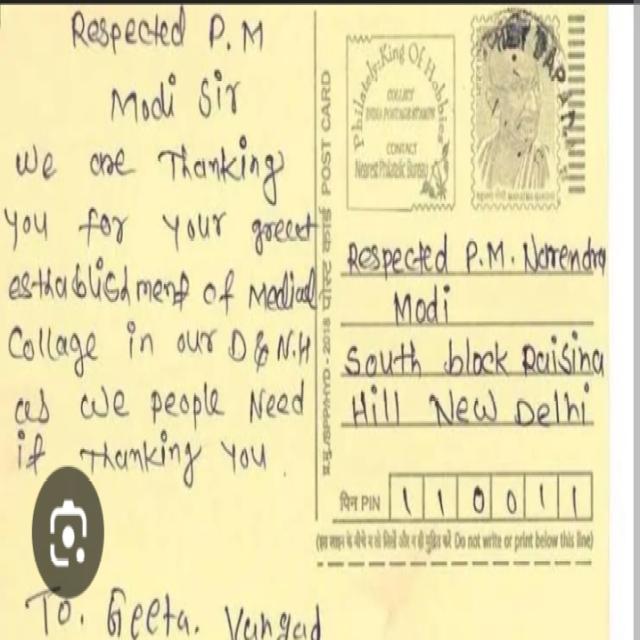 Respected P.M
Modi Sir
We are Thanking
you for your greeat
establishment of Medical
Collage in our D & N.H
as we people Need
it Thanking you.
To. Geeta. Vangad
POST CARD
पोस्ट कार्ड
Philately: King Of Hobbies
COLLECT
INDIA POSTAGE STAMPS
CONTACT
Nearest Philatelic Bureau
Respected P.M. Narendra
Modi
South block Raisina
Hill New Delhi
पिन PIN 110011
Do not write or print below this line)